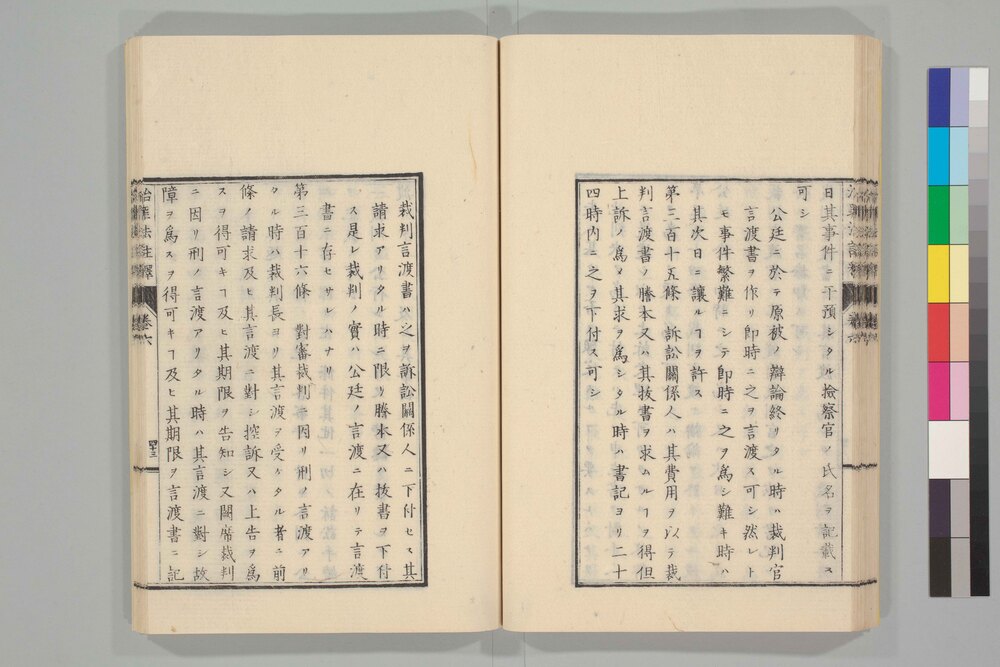 日其事件ニ干預シタル檢察官ノ氏名ヲ記載ス
可シ
公廷ニ於テ原被ノ辯論終リタル時ハ裁判官
言渡書ヲ作リ即時ニ之ヲ言渡ス可シ然レト
モ事件繁難ニシテ即時ニ之ヲ爲シ難キ時ハ
其次日ニ讓ルヿヲ許ス
第三百十五條 訴訟關係人ハ其費用ヲ以テ裁
判言渡書ノ謄本又ハ其抜書ヲ求ムルヿヲ得但
上訴ノ爲メ其求ヲ爲シタル時ハ書記ヨリ二十
四時内ニ之ヲ下付ス可シ
裁判言渡書ハ之ヲ訴訟關係人ニ下付セス其
請求アリタル時ニ限リ謄本又ハ抜書ヲ下付
ス是レ裁判ノ實ハ公廷ノ言渡ニ在リテ言渡
書ニ存セサレハナリ
第三百十六條 對審裁判ニ因リ刑ノ言渡アリ
タル時ハ裁判長ヨリ其言渡ヲ受ケタル者ニ前
條ノ請求及ヒ其言渡ニ對シ控訴又ハ上告ヲ爲
スヲ得可キヿ及ヒ其期限ヲ告知シ又闕席裁判
ニ因リ刑ノ言渡アリタル時ハ其言渡ニ對シ故
障ヲ爲スヲ得可キヿ及ヒ其期限ヲ言渡書ニ記
治罪法註釋 卷六